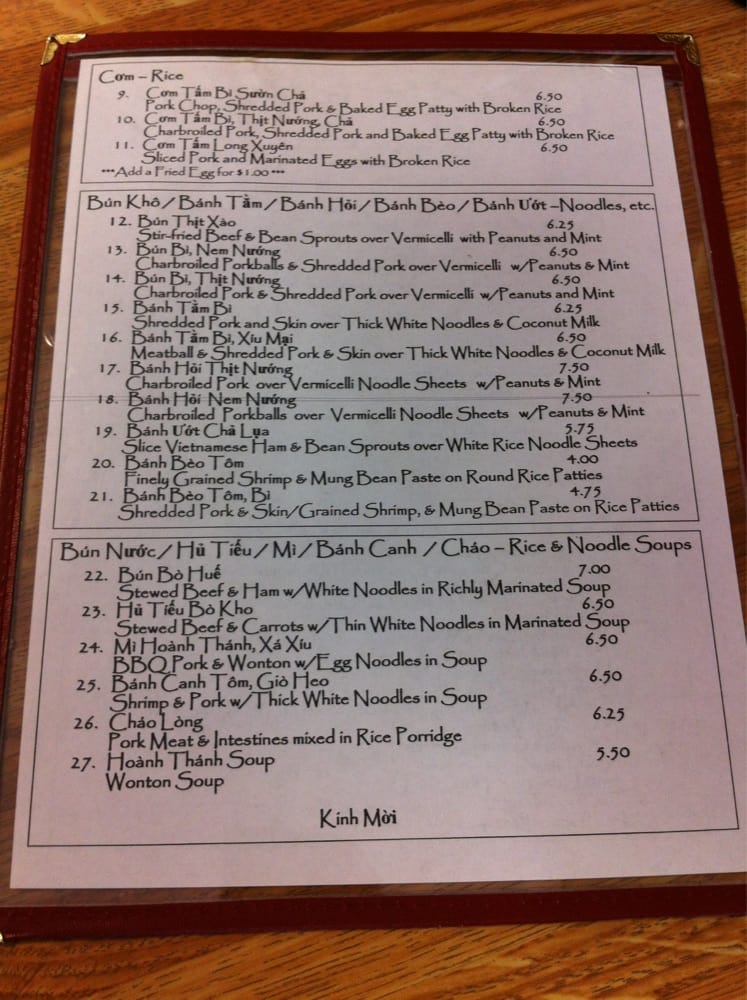 Cơm – Rice
9. Cơm Tấm Bì Sườn Chả 6.50
Pork Chop, Shredded Pork & Baked Egg Patty with Broken Rice
10. Cơm Tấm Bì, Thịt Nướng, Chả 6.50
Charbroiled Pork, Shredded Pork and Baked Egg Patty with Broken Rice
11. Cơm Tấm Long Xuyên 6.50
Sliced Pork and Marinated Eggs with Broken Rice
***Add a Fried Egg for $1.00***
Bún Khô / Bánh Tằm / Bánh Hỏi / Bánh Bèo / Bánh Ướt –Noodles, etc.
12. Bún Thịt Xào 6.25
Stir-fried Beef & Bean Sprouts over Vermicelli with Peanuts and Mint
13. Bún Bì, Nem Nướng 6.50
Charbroiled Porkballs & Shredded Pork over Vermicelli w/Peanuts & Mint
14. Bún Bì, Thịt Nướng 6.50
Charbroiled Pork & Shredded Pork over Vermicelli w/Peanuts and Mint
15. Bánh Tằm Bì 6.25
Shredded Pork and Skin over Thick White Noodles & Coconut Milk
16. Bánh Tằm Bì, Xíu Mại 6.50
Meatball & Shredded Pork & Skin over Thick White Noodles & Coconut Milk
17. Bánh Hỏi Thịt Nướng 7.50
Charbroiled Pork over Vermicelli Noodle Sheets w/Peanuts & Mint
18. Bánh Hỏi Nem Nướng 7.50
Charbroiled Porkballs over Vermicelli Noodle Sheets w/Peanuts & Mint
19. Bánh Ướt Chả Lụa 5.75
Slice Vietnamese Ham & Bean Sprouts over White Rice Noodle Sheets
20. Bánh Bèo Tôm 4.00
Finely Grained Shrimp & Mung Bean Paste on Round Rice Patties
21. Bánh Bèo Tôm, Bì 4.75
Shredded Pork & Skin/Grained Shrimp, & Mung Bean Paste on Rice Patties
Bún Nước / Hủ Tiếu / Mì / Bánh Canh / Cháo – Rice & Noodle Soups
22. Bún Bò Huế 7.00
Stewed Beef & Ham w/White Noodles in Richly Marinated Soup
23. Hủ Tiếu Bò Kho 6.50
Stewed Beef & Carrots w/Thin White Noodles in Marinated Soup
24. Mì Hoành Thánh, Xá Xíu 6.50
BBQ Pork & Wonton w/Egg Noodles in Soup
25. Bánh Canh Tôm, Giò Heo 6.50
Shrimp & Pork w/Thick White Noodles in Soup
26. Cháo Lòng 6.25
Pork Meat & Intestines mixed in Rice Porridge
27. Hoành Thánh Soup 5.50
Wonton Soup
Kính Mời